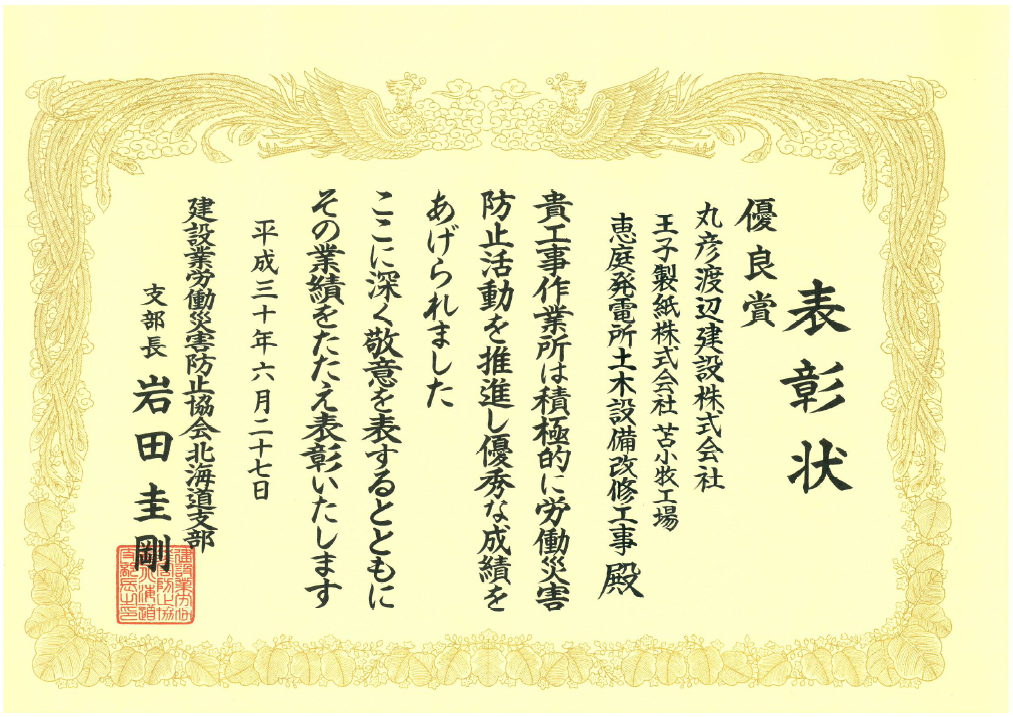 表彰状
優良賞
丸彦渡辺建設株式会社
王子製紙株式会社 苫小牧工場
恵庭発電所土木設備改修工事 殿
貴工事作業所は積極的に労働災害
防止活動を推進し優秀な成績を
あげられました
ここに深く敬意を表するとともに
その業績をたたえ表彰いたします
平成三十年六月二十七日
建設業労働災害防止協会北海道支部
支部長 岩田圭剛